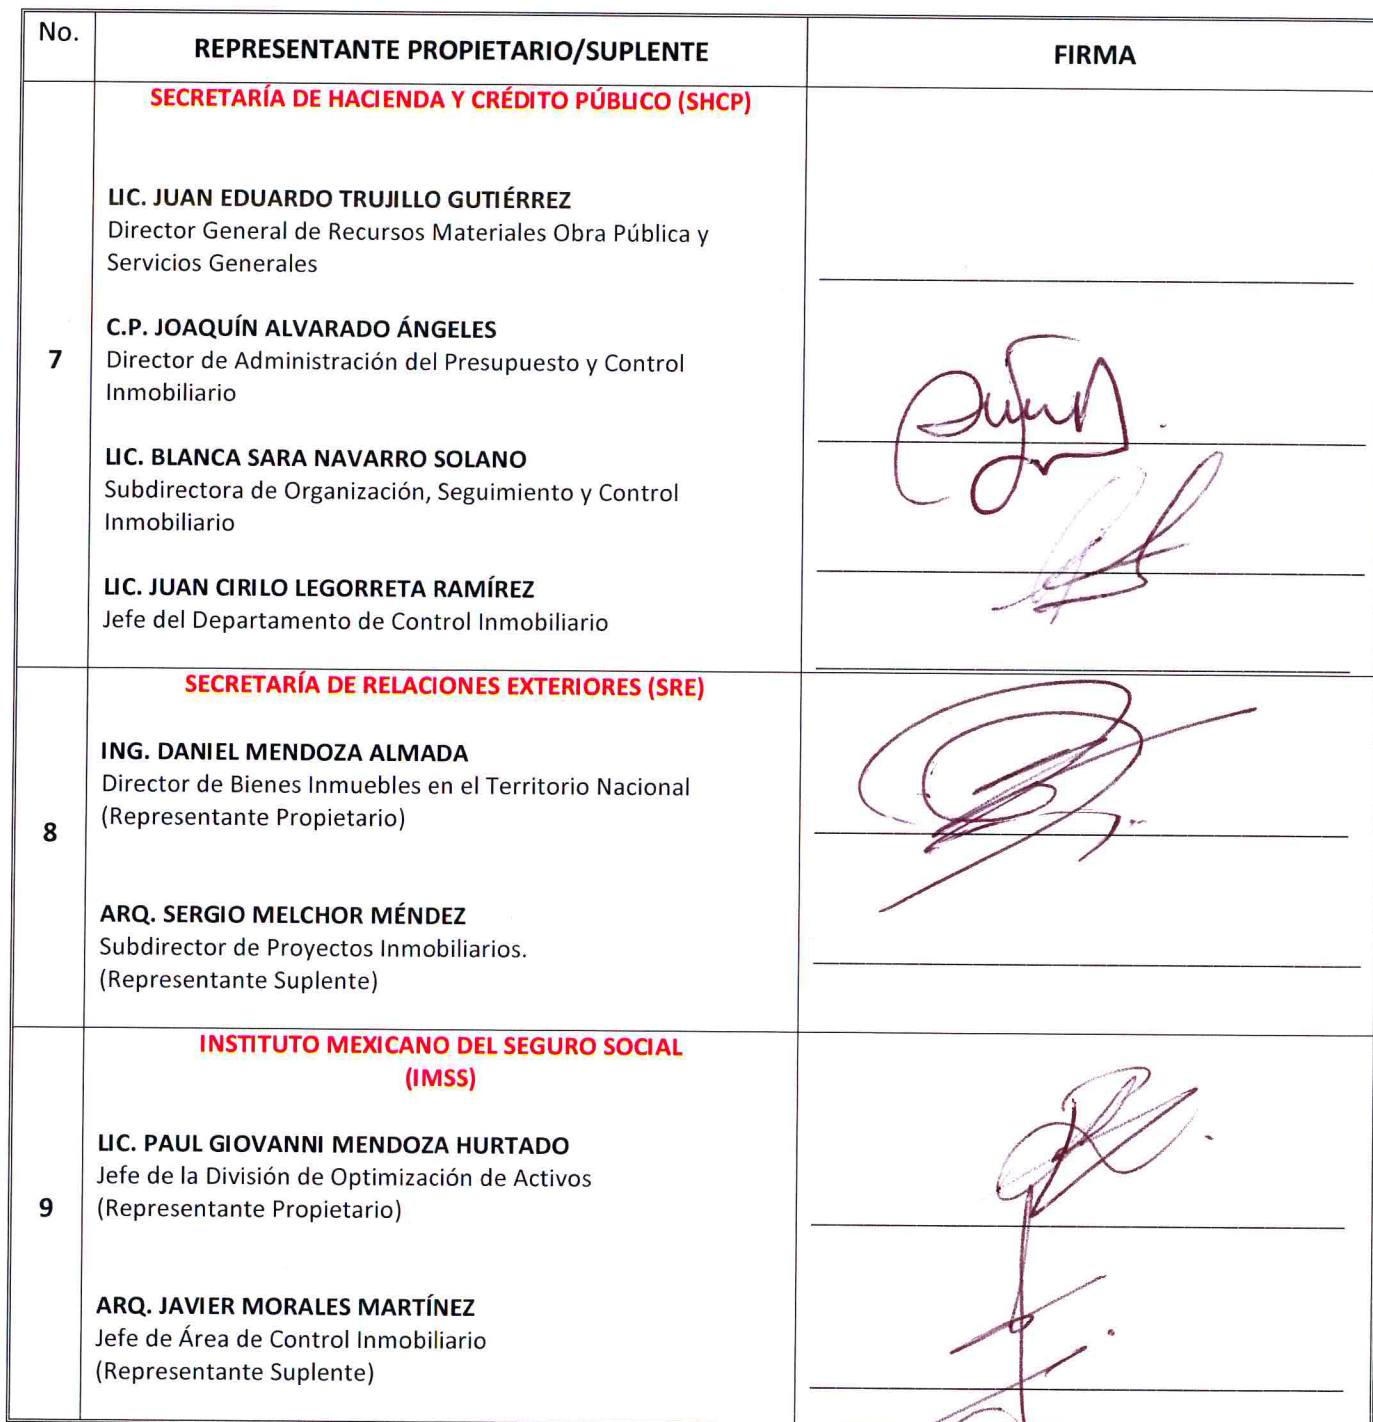 No.
REPRESENTANTE PROPIETARIO/SUPLENTE
FIRMA
SECRETARÍA DE HACIENDA Y CRÉDITO PÚBLICO (SHCP)
LIC. JUAN EDUARDO TRUJILLO GUTIÉRREZ
Director General de Recursos Materiales Obra Pública y
Servicios Generales
7
C.P. JOAQUÍN ALVARADO ÁNGELES
Director de Administración del Presupuesto y Control
Inmobiliario
LIC. BLANCA SARA NAVARRO SOLANO
Subdirectora de Organización, Seguimiento y Control
Inmobiliario
LIC. JUAN CIRILO LEGORRETA RAMÍREZ
Jefe del Departamento de Control Inmobiliario
SECRETARÍA DE RELACIONES EXTERIORES (SRE)
ING. DANIEL MENDOZA ALMADA
Director de Bienes Inmuebles en el Territorio Nacional
(Representante Propietario)
8
ARQ. SERGIO MELCHOR MÉNDEZ
Subdirector de Proyectos Inmobiliarios.
(Representante Suplente)
INSTITUTO MEXICANO DEL SEGURO SOCIAL
(IMSS)
LIC. PAUL GIOVANNI MENDOZA HURTADO
Jefe de la División de Optimización de Activos
(Representante Propietario)
9
ARQ. JAVIER MORALES MARTÍNEZ
Jefe de Área de Control Inmobiliario
(Representante Suplente)